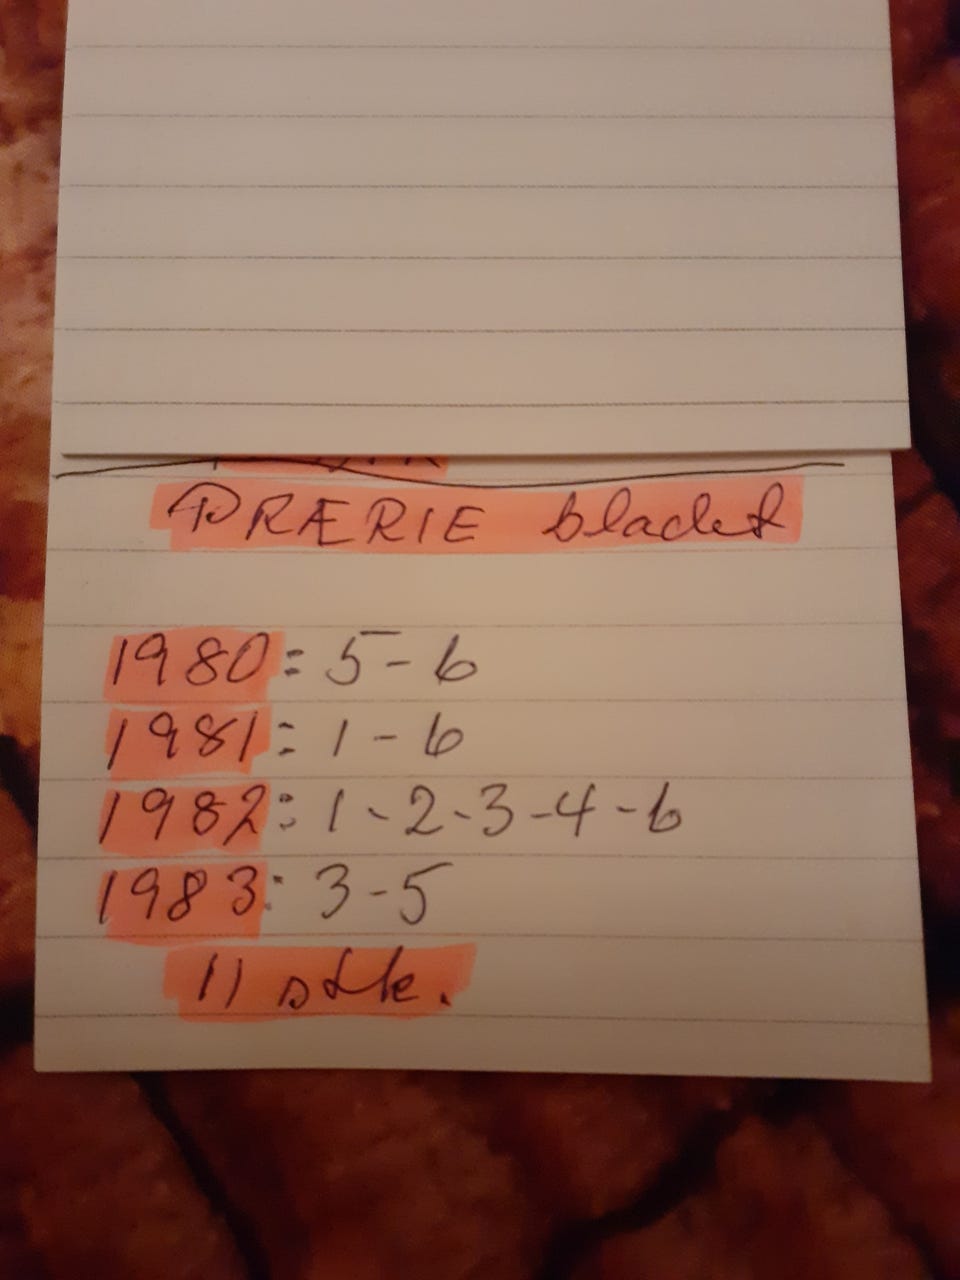 PRÆRIE bladet
1980: 5-6
1981: 1-6
1982: 1-2-3-4-6
1983: 3-5
11 stk.